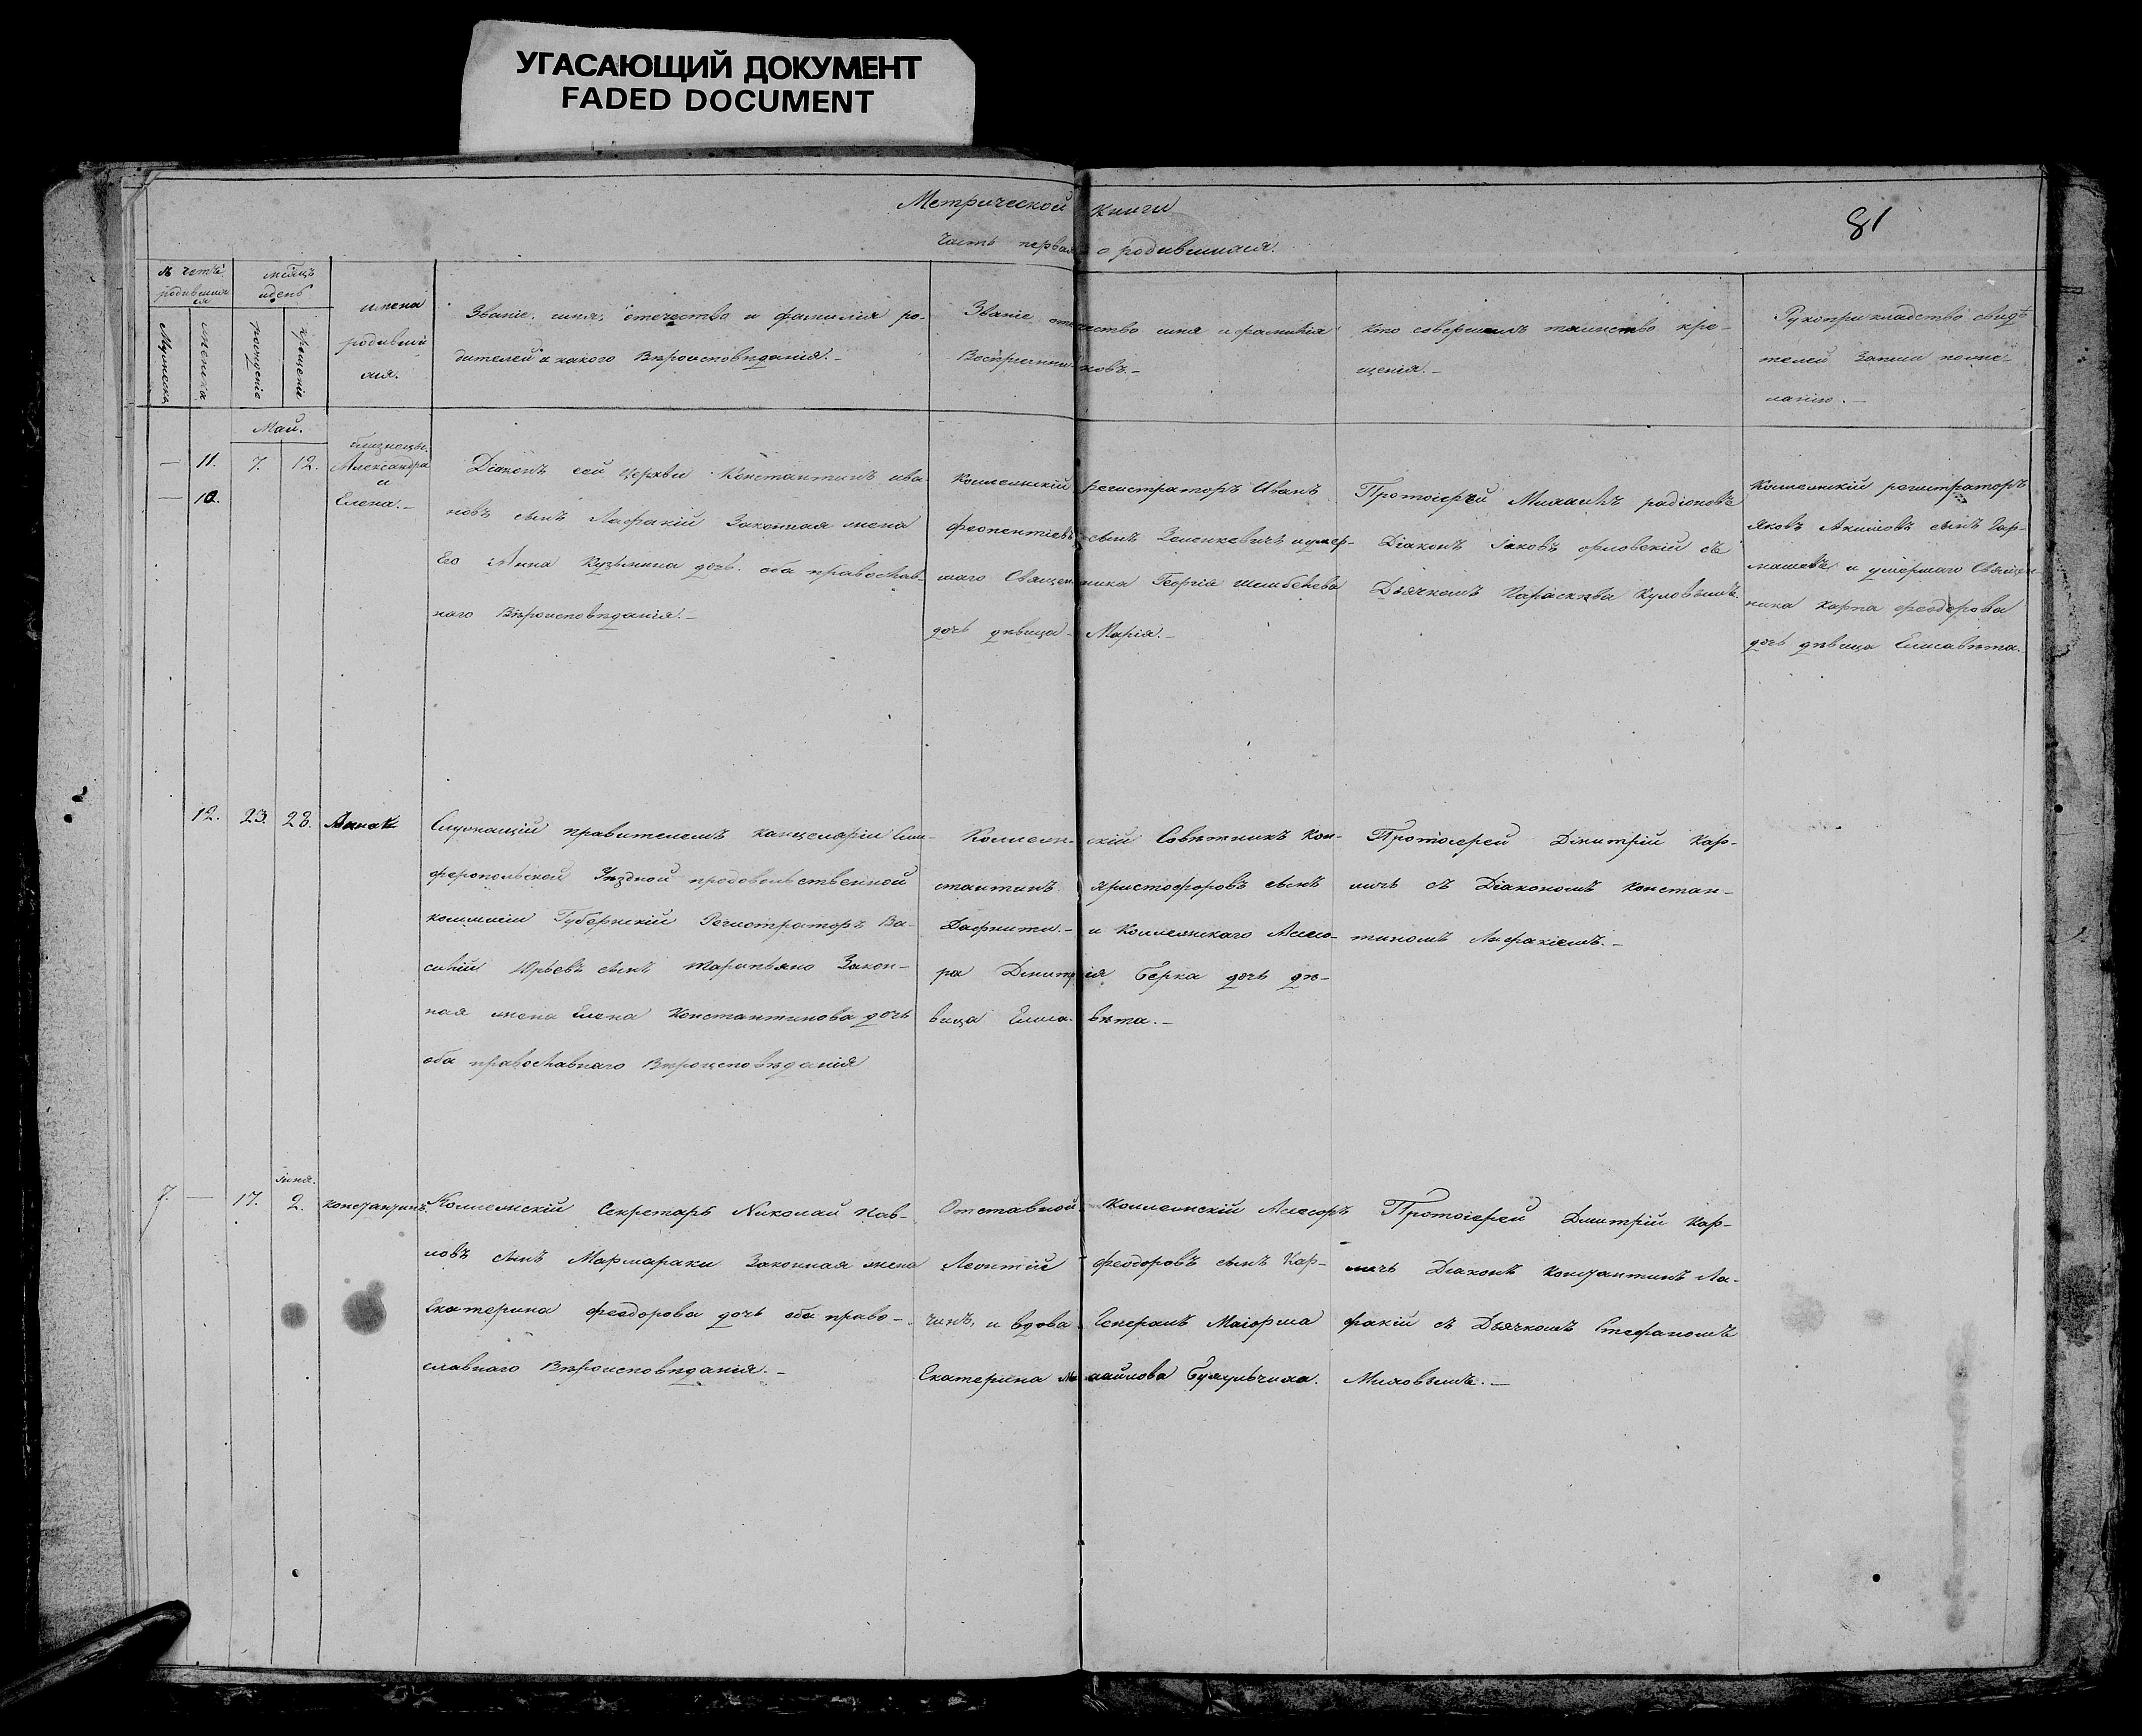 УГАСАЮЩИЙ ДОКУМЕНТ
FADED DOCUMENT
Метрической книги
81
Часть первая о родившихся.
мѣсяцъ
и день
Мужеска
женска
рожденіе
крещеніе
имена
родивши
хся.
Званіе, имя, отечество и фамилія ро-
дителей и какого Вѣроисповѣданія.-
Званіе отечество имя и фамилія
Воспріемниковъ.-
Кто совершилъ таинство кре-
щенія.-
Рукоприкладство свидѣ-
телей Записи по же-
ланію.-
Май.
близнецы.
— 11. 7. 12. Александра
и
— 10. Елена.-
Діаконъ сей Церкви Константинъ ива-
новъ сынъ Лафакій Законная жена
Его Анна Кузьмина дочь. оба православ-
наго Вѣроисповѣданія.-
Коллежскій регистраторъ Иванъ
сынъ Зеленкевичъ и умер-
шаго Священника Георгія
дочь дѣвица Марія.-
Протоіерей Михаилъ радіоновъ
Діаконъ Іаковъ орловскій съ
Дьячкомъ
Коллежскій регистраторъ
Яковъ Акимовъ сынъ
и умершаго Священ-
ника Карпа феодорова
дочь дѣвица Елисавѣта.
12. 23. 28.
Служащій правителемъ канцеляріи Сим-
феропольской Уѣздной продовольственной
коммисіи Губернскій Регистраторъ Ва-
силій Юрьевъ сынъ Закон-
ная жена Елена Константинова дочь
оба православнаго Вѣроисповѣданія
Коллежскій Совѣтникъ Кон-
стантинъ христофоровъ сынъ
и Коллежскаго Ассесо-
ра Дмитрія Берка дочь дѣ-
вица Елисавѣта.-
Протоіерей Димитрій Кар-
съ Діакономъ Констан-
тиномъ Лафакіемъ.-
іюня.
7. — 17. 2. Константинъ.
Коллежскій Секретарь Николай Пав-
ловъ сынъ Мармараки Законная жена
Екатерина феодорова дочь оба право-
славнаго Вѣроисповѣданія.-
Отставной Коллежскій Ассесоръ
Леонтій феодоровъ сынъ Кар-
чинъ, и вдова Генералъ Маіорша
Екатерина
Протоіерей Димитрій Кар-
Діаконъ Константинъ Ла-
факій съ Дьячкомъ Стефаномъ